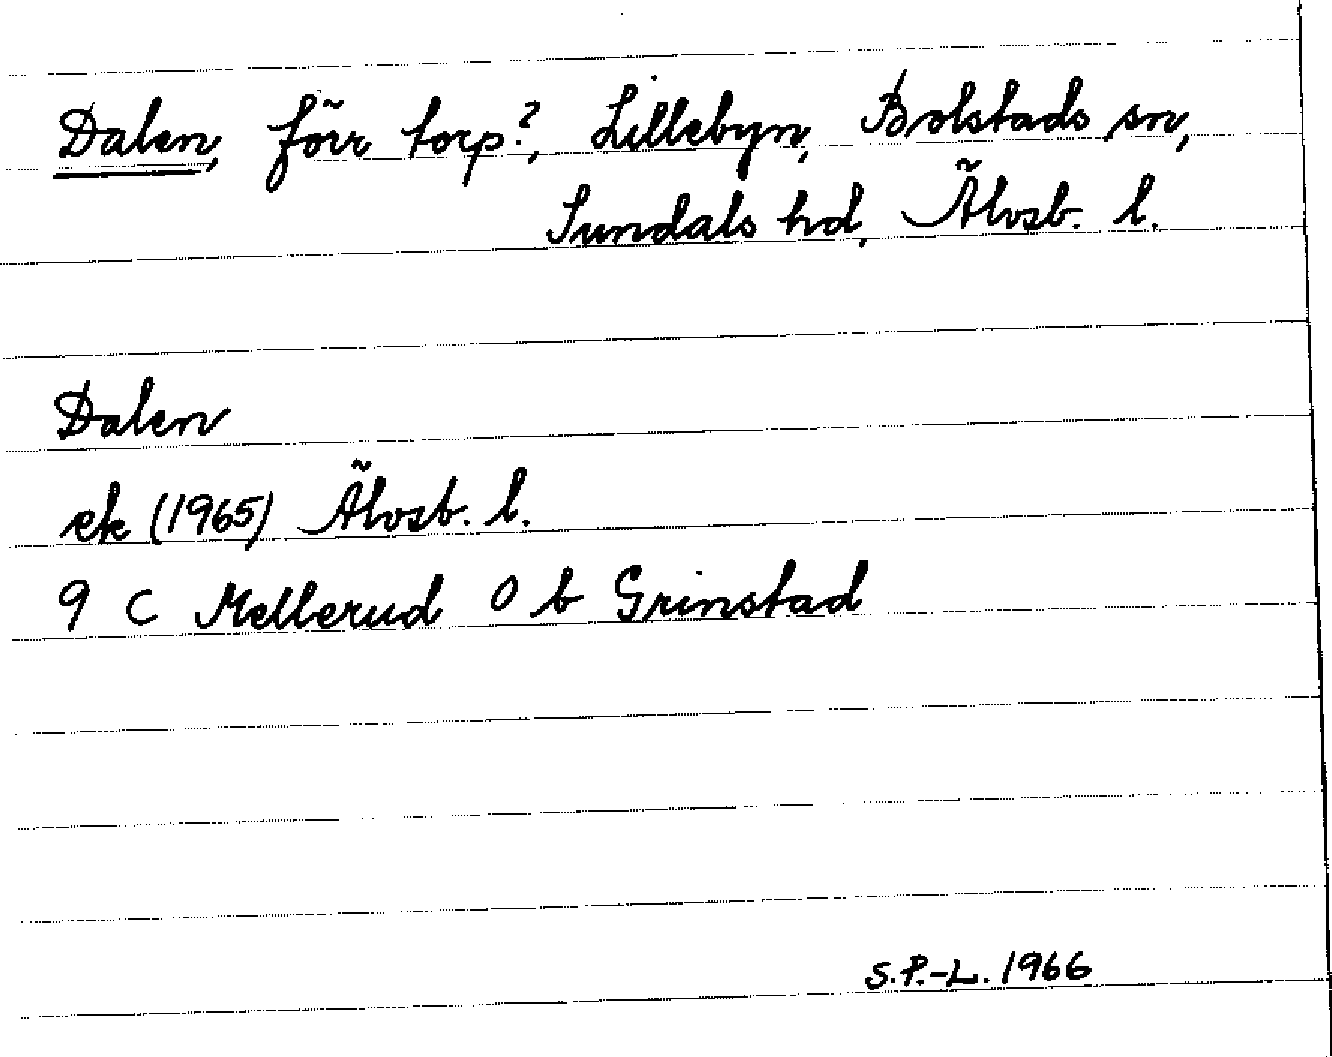 Dalen, förr torp?, Lillebyn, Bolstads sn,
Sundals hd, Älvsb. l.
Dalen
ek (1965) Älvsb. l.
9 C Mellerud 0 b Grinstad
S.P.-L. 1966